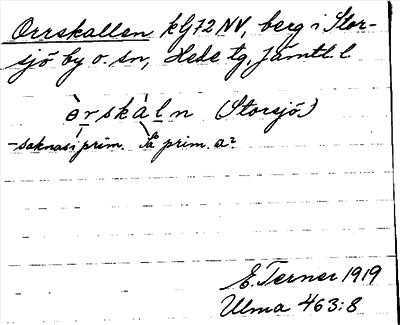 Orrskallen kfj 72 NV, berg i Stor-
sjö by o. sn, Hede tg, Jämtl. l.
ò̱rskáḻn (Storsjö.)
-saknas i prim. Så prim. a?
E. Terner 1919
Ulma 463:8